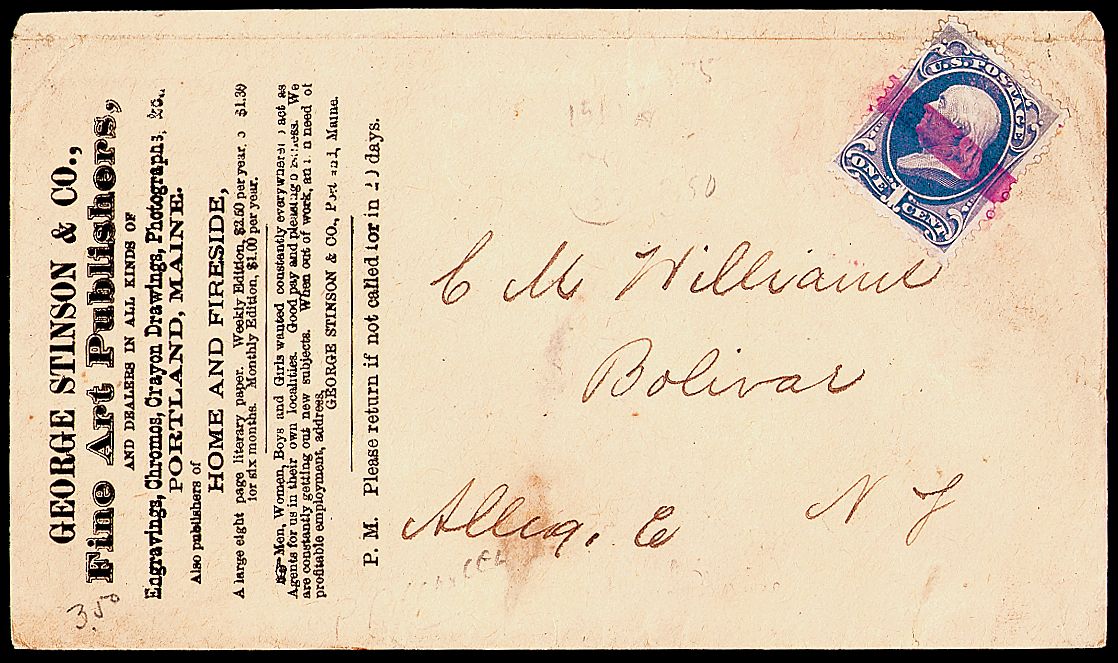 GEORGE STINSON & CO.,
Fine Art Publishers,
AND DEALERS IN ALL KINDS OF
Engravings, Chromos, Crayon Drawings, Photographs, &c.,
PORTLAND, MAINE.
Also publishers of
HOME AND FIRESIDE,
A large eight page literary paper. Weekly Edition, $2.50 per year, $1.30
for six months. Monthly Edition, $1.00 per year.
Men, Women, Boys and Girls wanted constantly everywhere act as
Agents for us in their own localities. Good pay and pleasing business. We
are constantly getting out new subjects. When out of work, in need of
profitable employment, address,
GEORGE STINSON & CO., Portland, Maine.
P. M. Please return if not called for in days.
3.50
U.S. POSTAGE
ONE 1 CENT
15
50
C M Williams
Bolivar
Alleg. C N Y